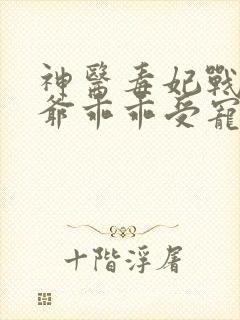 神醫毒妃戰
爺乖乖受寵
十階浮屠